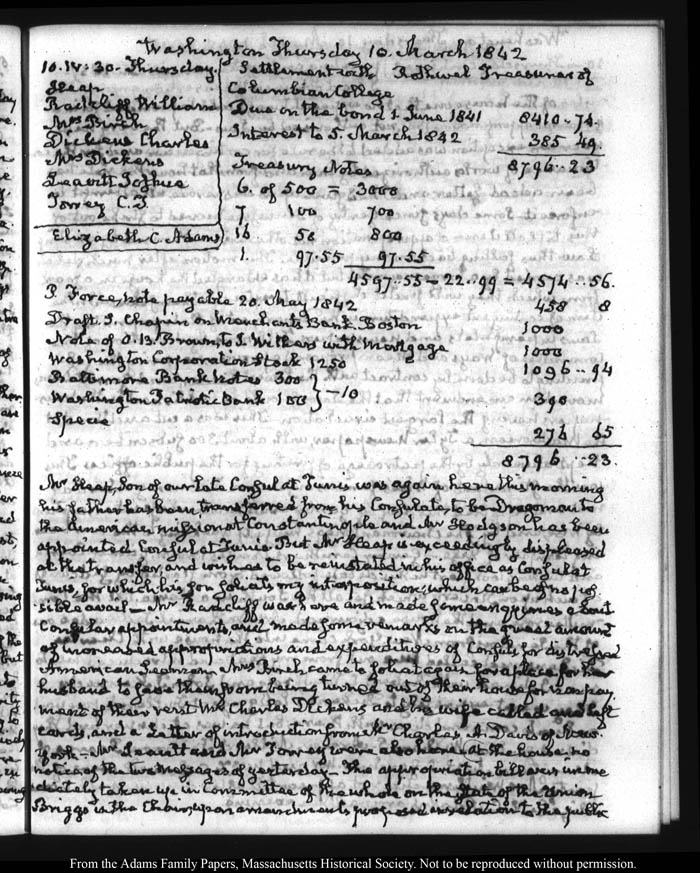 Washington Thursday 10. March 1842
10. IV: 30. Thursday.
Heap
Radcliff William
Mrs Birch
Dickens Charles
Mrs Dickens
Leavitt Joshua
Torrey C. T.
Elizabeth C. Adams
Settlement with R Rothwel Treasurer of
Columbian College
Due on the bond 1. June 1841 8410 - 74.
Interest to 5. March 1842 385 49.
8796 .. 23
Treasury Notes
6. of 500 = 3000
7 100 700
16 50 800
1. 97.55 97.55
4597..55 - 22..99 = 4574..56.
P. Force, note payable 20. May 1842 458 8
Draft. S. Chapin on Merchants Bank. Boston 1000
Note of O. B. Brown, to J. Withers with Mortgage 1000
Washington Corporation Stock 1250 1096..94
Baltimore Bank Notes 300
Washington Patriotic Bank 100 } -10 390
Specie 276 65
8796..23.
Mr Heap, Son of our late Consul at Tunis was again here this morning
his father has been transferred from his Consulate, to be Dragoman to
the American mission at Constantinople and Mr Hodgson has been
appointed Consul at Tunis. But Mr Heap is exceedingly displeased
at the transfer, and wishes to be reinstated in his office as Consul at
Tunis, for which his son solicits my interposition, which can be of no pos
sible avail — Mr Radcliff was here and made some enquiries about
Consular appointments, and made some remarks on the great amount
of increased appropriations and expenditures of Consuls for distressed
American Seamen. Mrs Birch came to solicit again for a place for her
husband to save them from being turned out of their house for non pay
ment of their rent Mr Charles Dickens and his wife called and left
cards, and a Letter of introduction from Mr Charles A. Davis of New
York — Mr Leavitt and Mr Torrey were also here. At the house no
notice of the two Messages of yesterday — The appropriation bill was imme
diately taken up in Committee of the whole on the State of the Union
Briggs in the Chair, upon amendments proposed in relation to the public
From the Adams Family Papers, Massachusetts Historical Society. Not to be reproduced without permission.